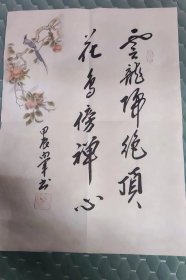 雲龍歸絕頂
花鳥傍禪心
甲辰 書